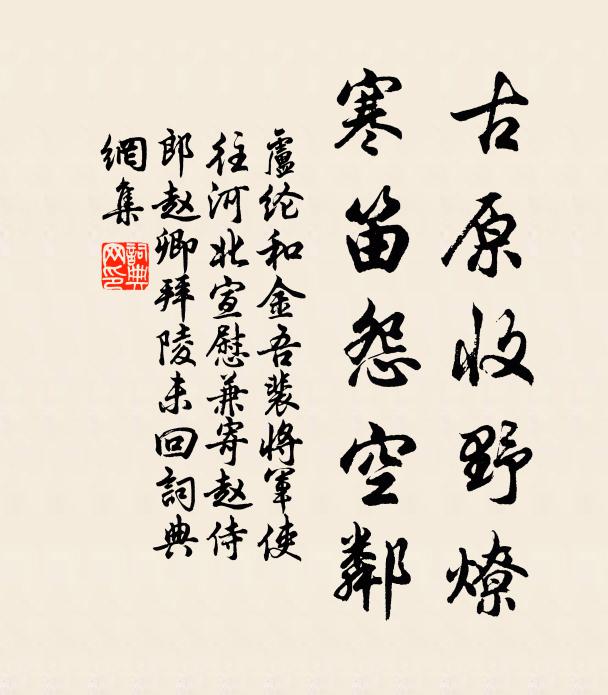 古原收野燎
寒笛怨空鄰
盧纶和金吾裴將軍使
往河北宣慰兼寄赵侍
郎赵卿拜陵未回詞典
網集
詞典
网印